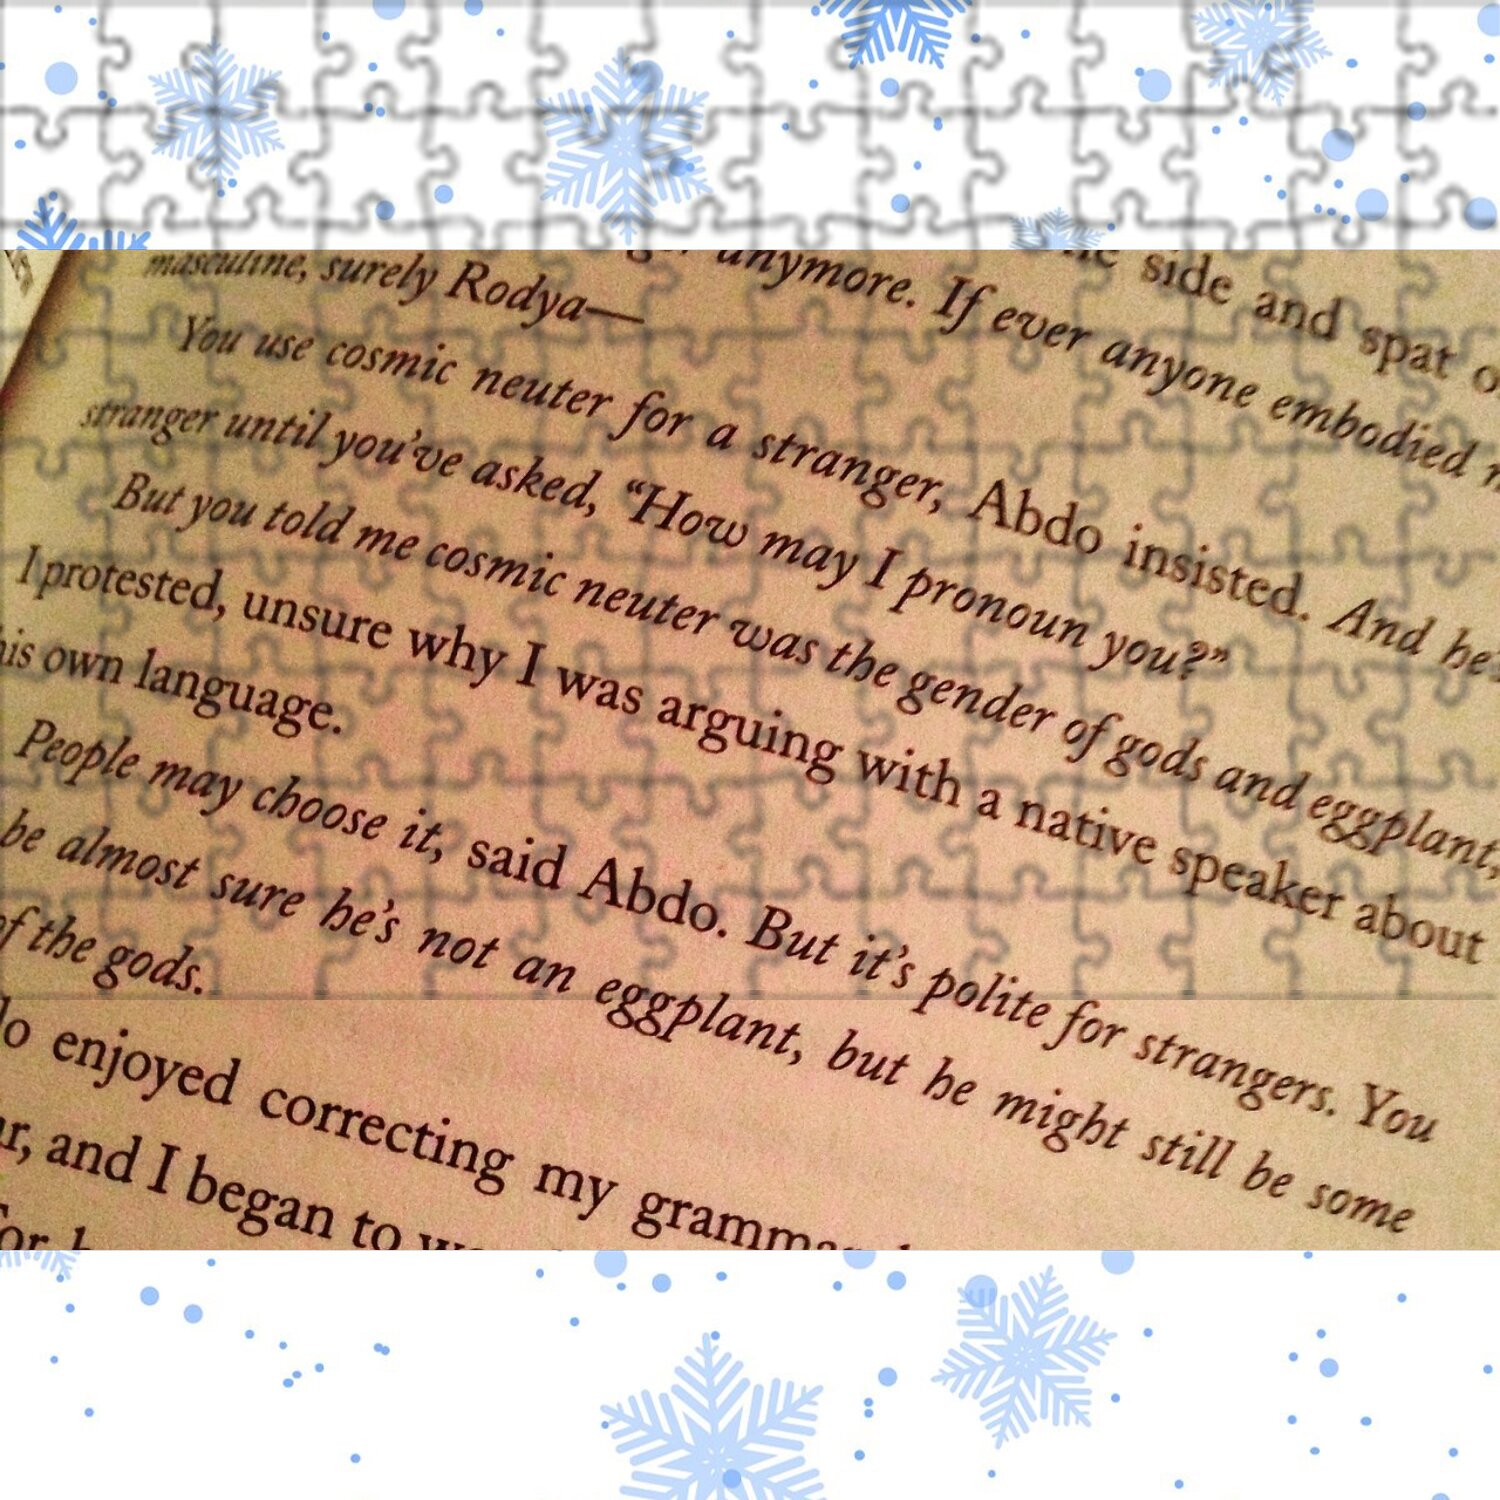 side and spat
anymore. If ever anyone embodied
masculine, surely Rodya—
You use cosmic neuter for a stranger, Abdo insisted. And he's
stranger until you've asked, "How may I pronoun you?"
But you told me cosmic neuter was the gender of gods and eggplant,
I protested, unsure why I was arguing with a native speaker about
his own language.
People may choose it, said Abdo. But it's polite for strangers. You
be almost sure he's not an eggplant, but he might still be some
of the gods.
enjoyed correcting my
and I began to